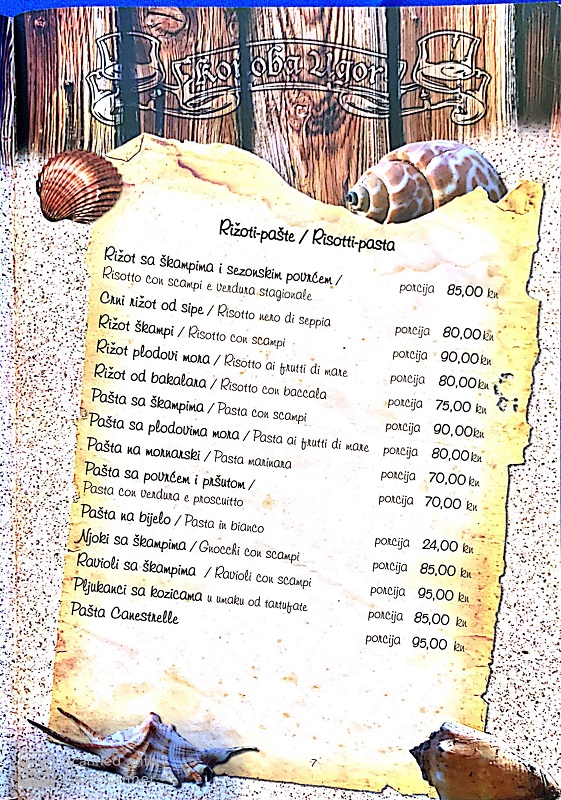 Konoba Ugor
Rižoti-pašte / Risotti-pasta
Rižot sa škampima i sezonskim povrćem /
Risotto con scampi e verdura stagionale porcija 85,00 kn
Crni rižot od sipe / Risotto nero di seppia porcija 80,00 kn
Rižot škampi / Risotto con scampi porcija 90,00 kn
Rižot plodovi mora / Risotto ai frutti di mare porcija 80,00 kn
Rižot od bakalara / Risotto con baccala porcija 75,00 kn
Pašta sa škampima / Pasta con scampi porcija 90,00 kn
Pašta sa plodovima mora / Pasta ai frutti di mare porcija 80,00 kn
Pašta na mornarski / Pasta marinara porcija 70,00 kn
Pašta sa povrćem i pršutom /
Pasta con verdura e prosciutto porcija 70,00 kn
Pašta na bijelo / Pasta in bianco porcija 24,00 kn
Njoki sa škampima / Gnocchi con scampi porcija 85,00 kn
Ravioli sa škampima / Ravioli con scampi porcija 95,00 kn
Pljukanci sa kozicama u umaku od tartufate porcija 85,00 kn
Pašta Canestrelle porcija 95,00 kn
7